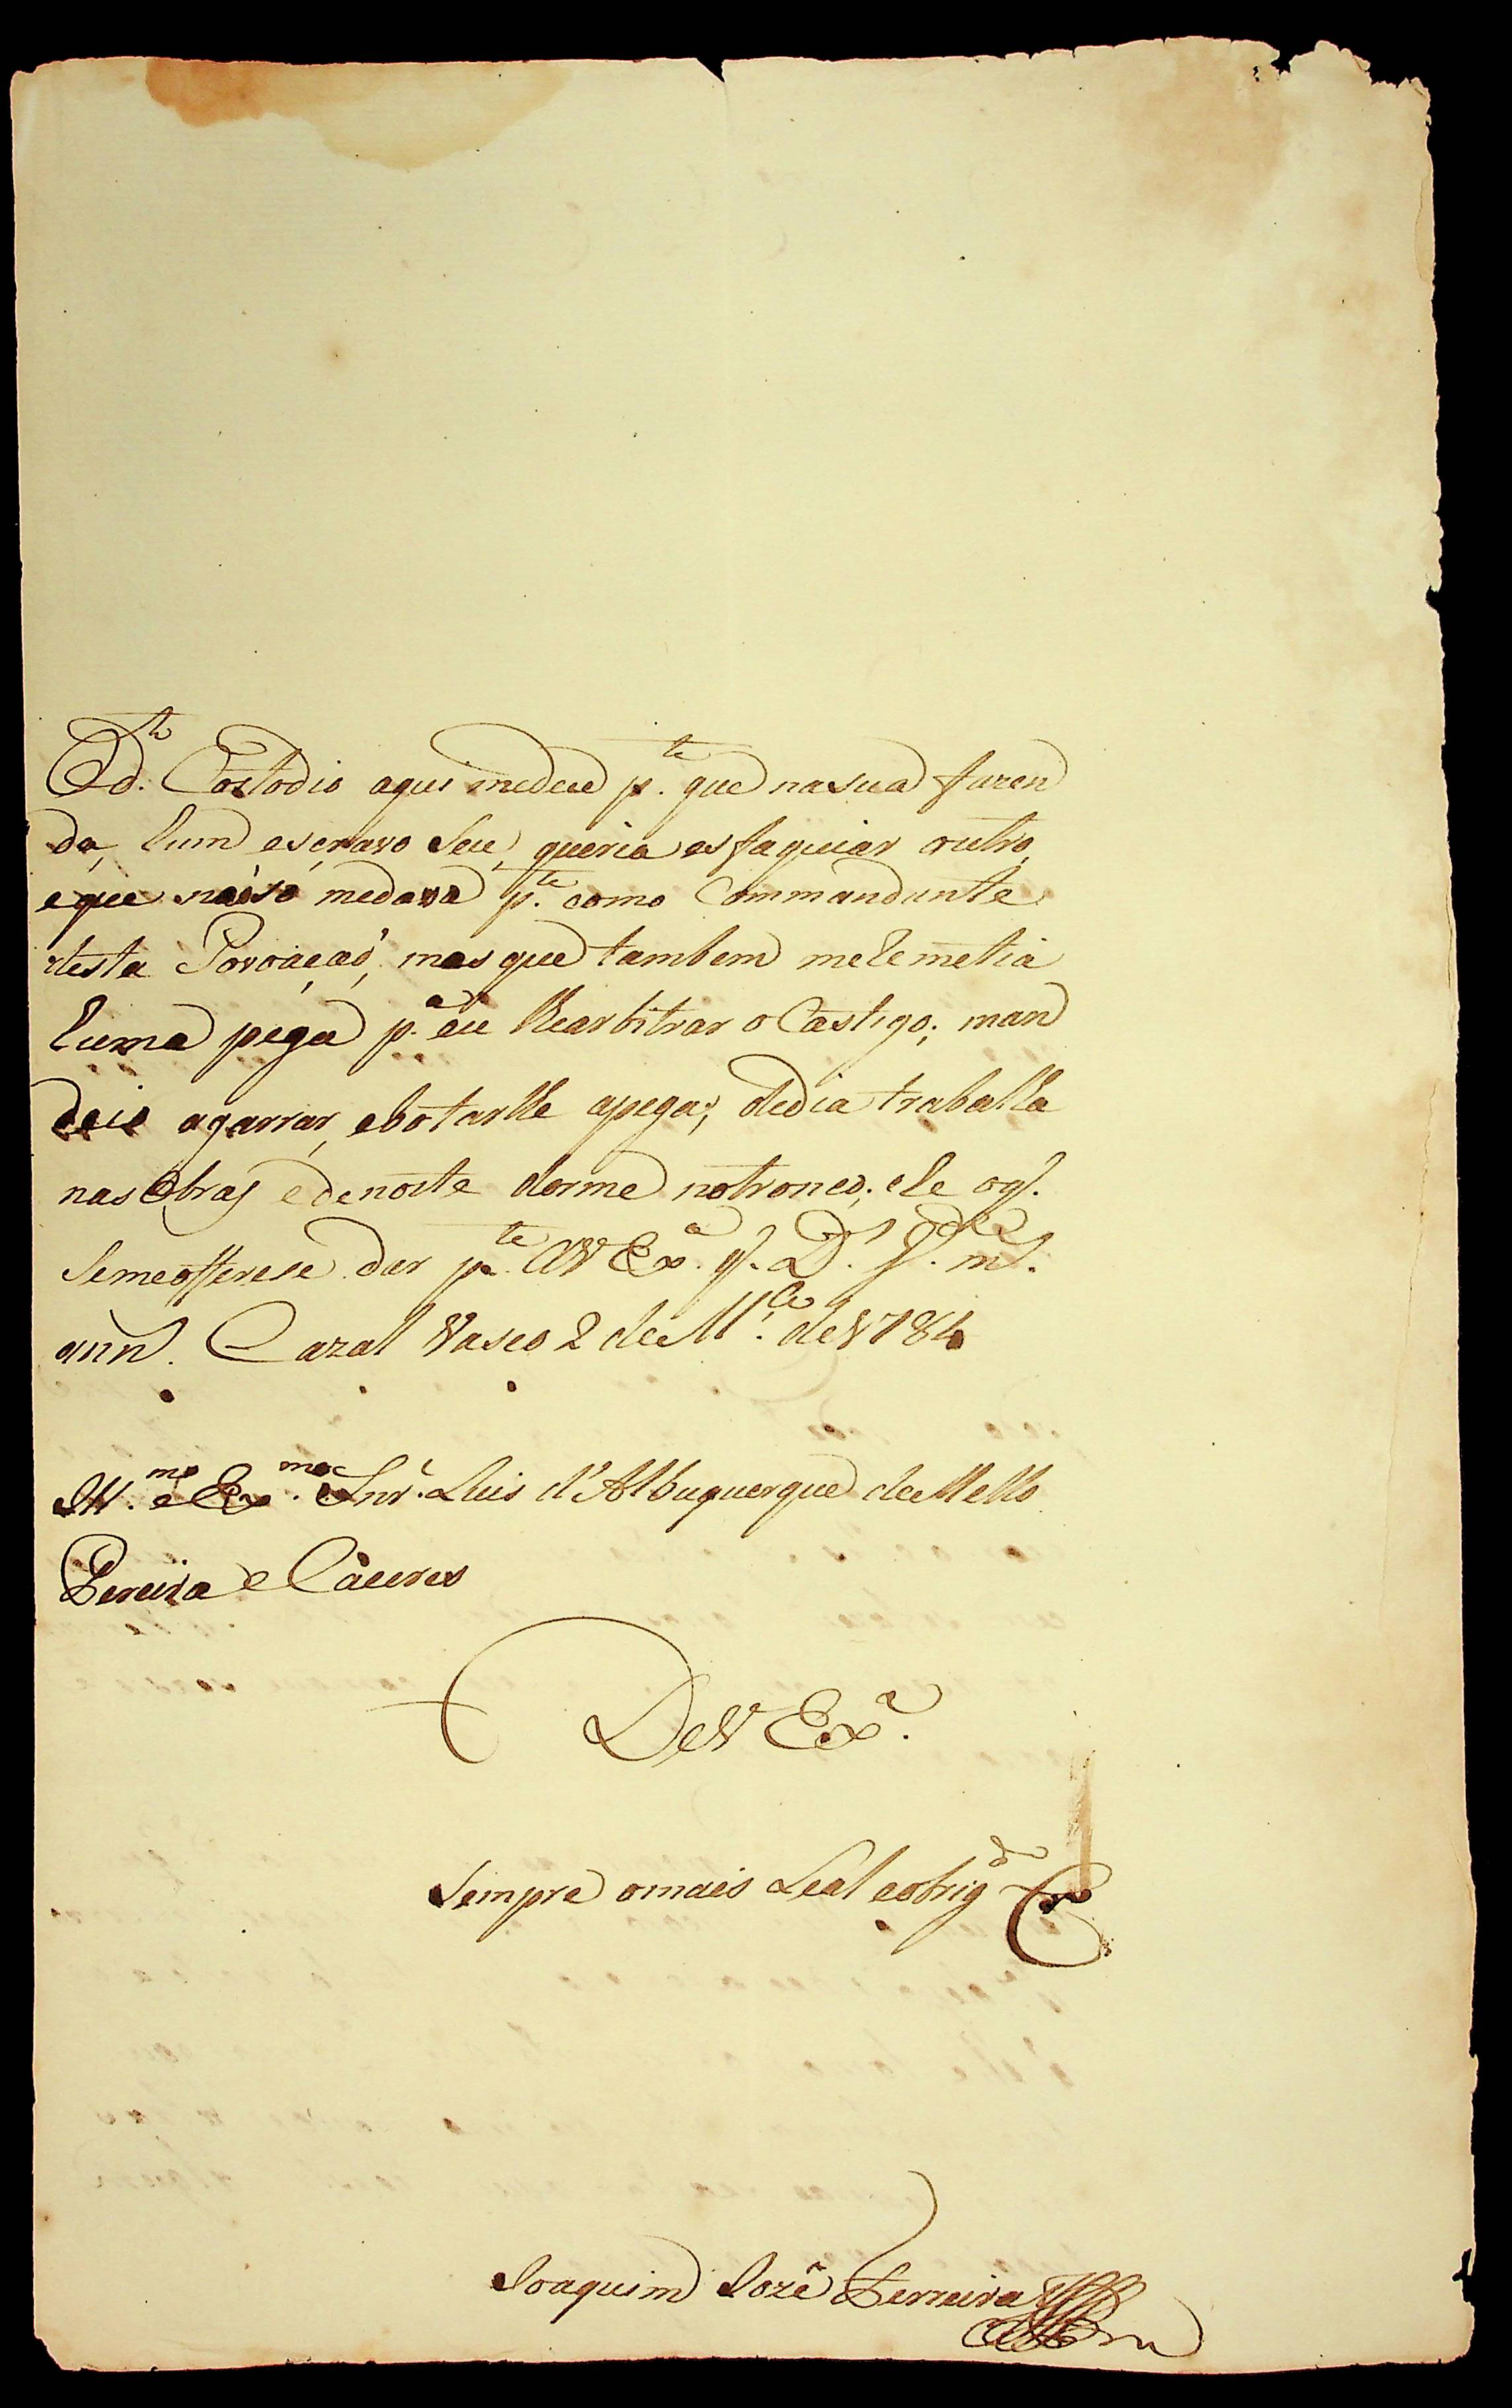 Od.te Costodio aqui medeu p.te que nasua fazen
da, hum escravo seu, queria esfaquiar outro,
eque naõsó medava p.te como Commandante
desta Povoaçaõ, mas que tambem meremetia
huma pega p.a eu lhearbitrar o Castigo; man
deio agarrar, ebotarlhe apega; dedia trabalha
nas Obras e denoite dorme notronco; he oq.
semeofferese dar p.te AV Ex.a q. D.s g.de m.s
ann.s Cazal Vasco 2 de M.ço de 1784
Ill.mo e Ex.mo Snr. Luis d'Albuquerque deMello
Pereira e Cáceres
DeV Ex.a
Sempre omais Leal eobrig.do C.
Joaquim Jozé Ferreira